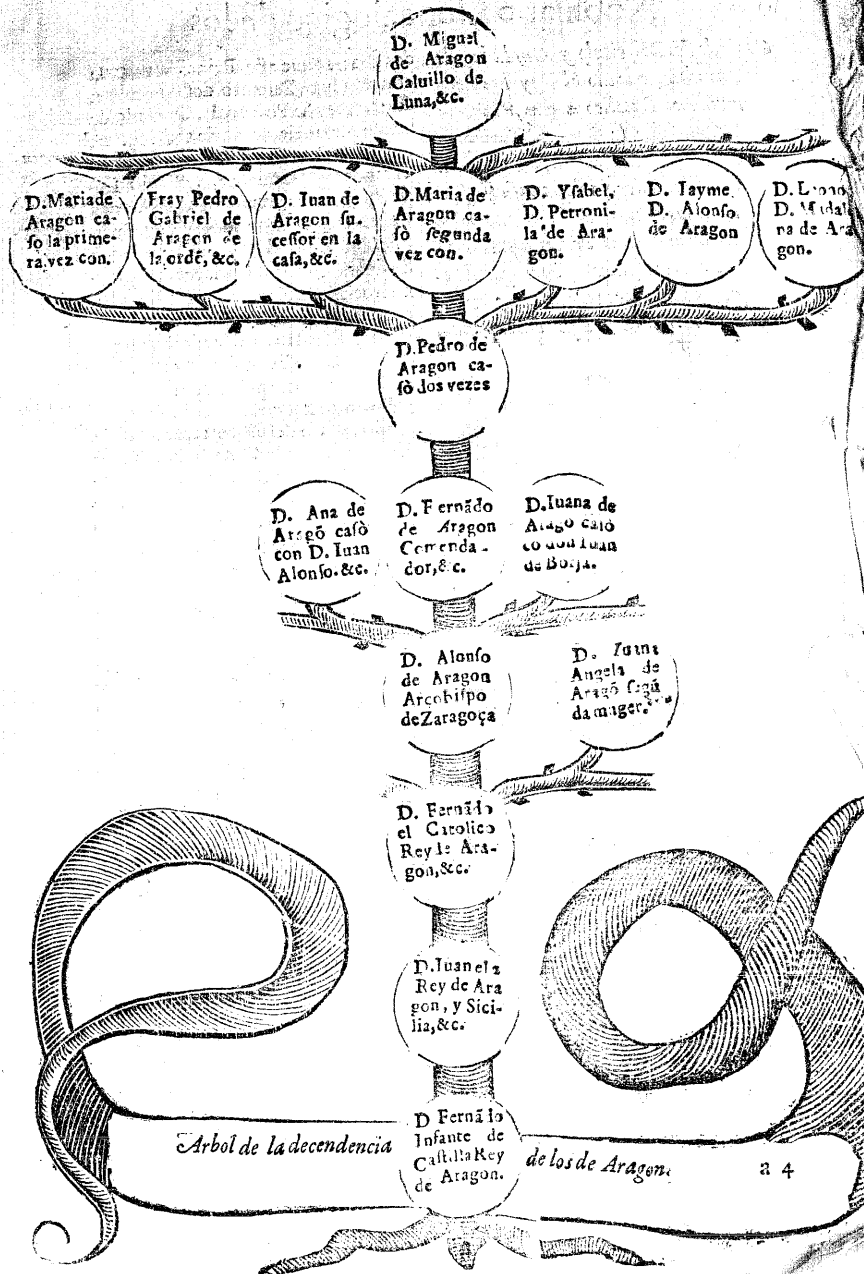 D. Miguel
de Aragon
Caluillo de
Luna,&c.
D.Maria de
Aragon ca-
sò la prime-
ra vez con.
Fray Pedro
Gabriel de
Aragon de
la ordẽ, &c.
D. Iuan de
Aragon su-
cessor en la
casa,&c.
D.Maria de
Aragon ca-
sò segunda
vez con.
D. Ysabel,
D. Petroni-
la de Ara-
gon.
D. Iayme
D. Alonso
de Aragon
D.
D.
na de Ara
gon.
D.Pedro de
Aragon ca-
sò dos vezes
D. Ana de
Aragõ casò
con D. Iuan
Alonso.&c.
D. Fernãdo
de Aragon
Comenda-
dor,&c.
D.Iuana de
Aragõ casò
cõ don Iuan
de Borja.
D. Alonso
de Aragon
Arcobispo
de Zaragoça
D. Iuana
Angela de
Aragõ segũ
da muger.
D. Fernãdo
el Catolico
Rey de Ara-
gon,&c.
D.Iuan el 2
Rey de Ara
gon, y Sici-
lia,&c.
D Fernãdo
Infante de
Castilla Rey
de Aragon.
Arbol de la decendencia de los de Aragon. a 4